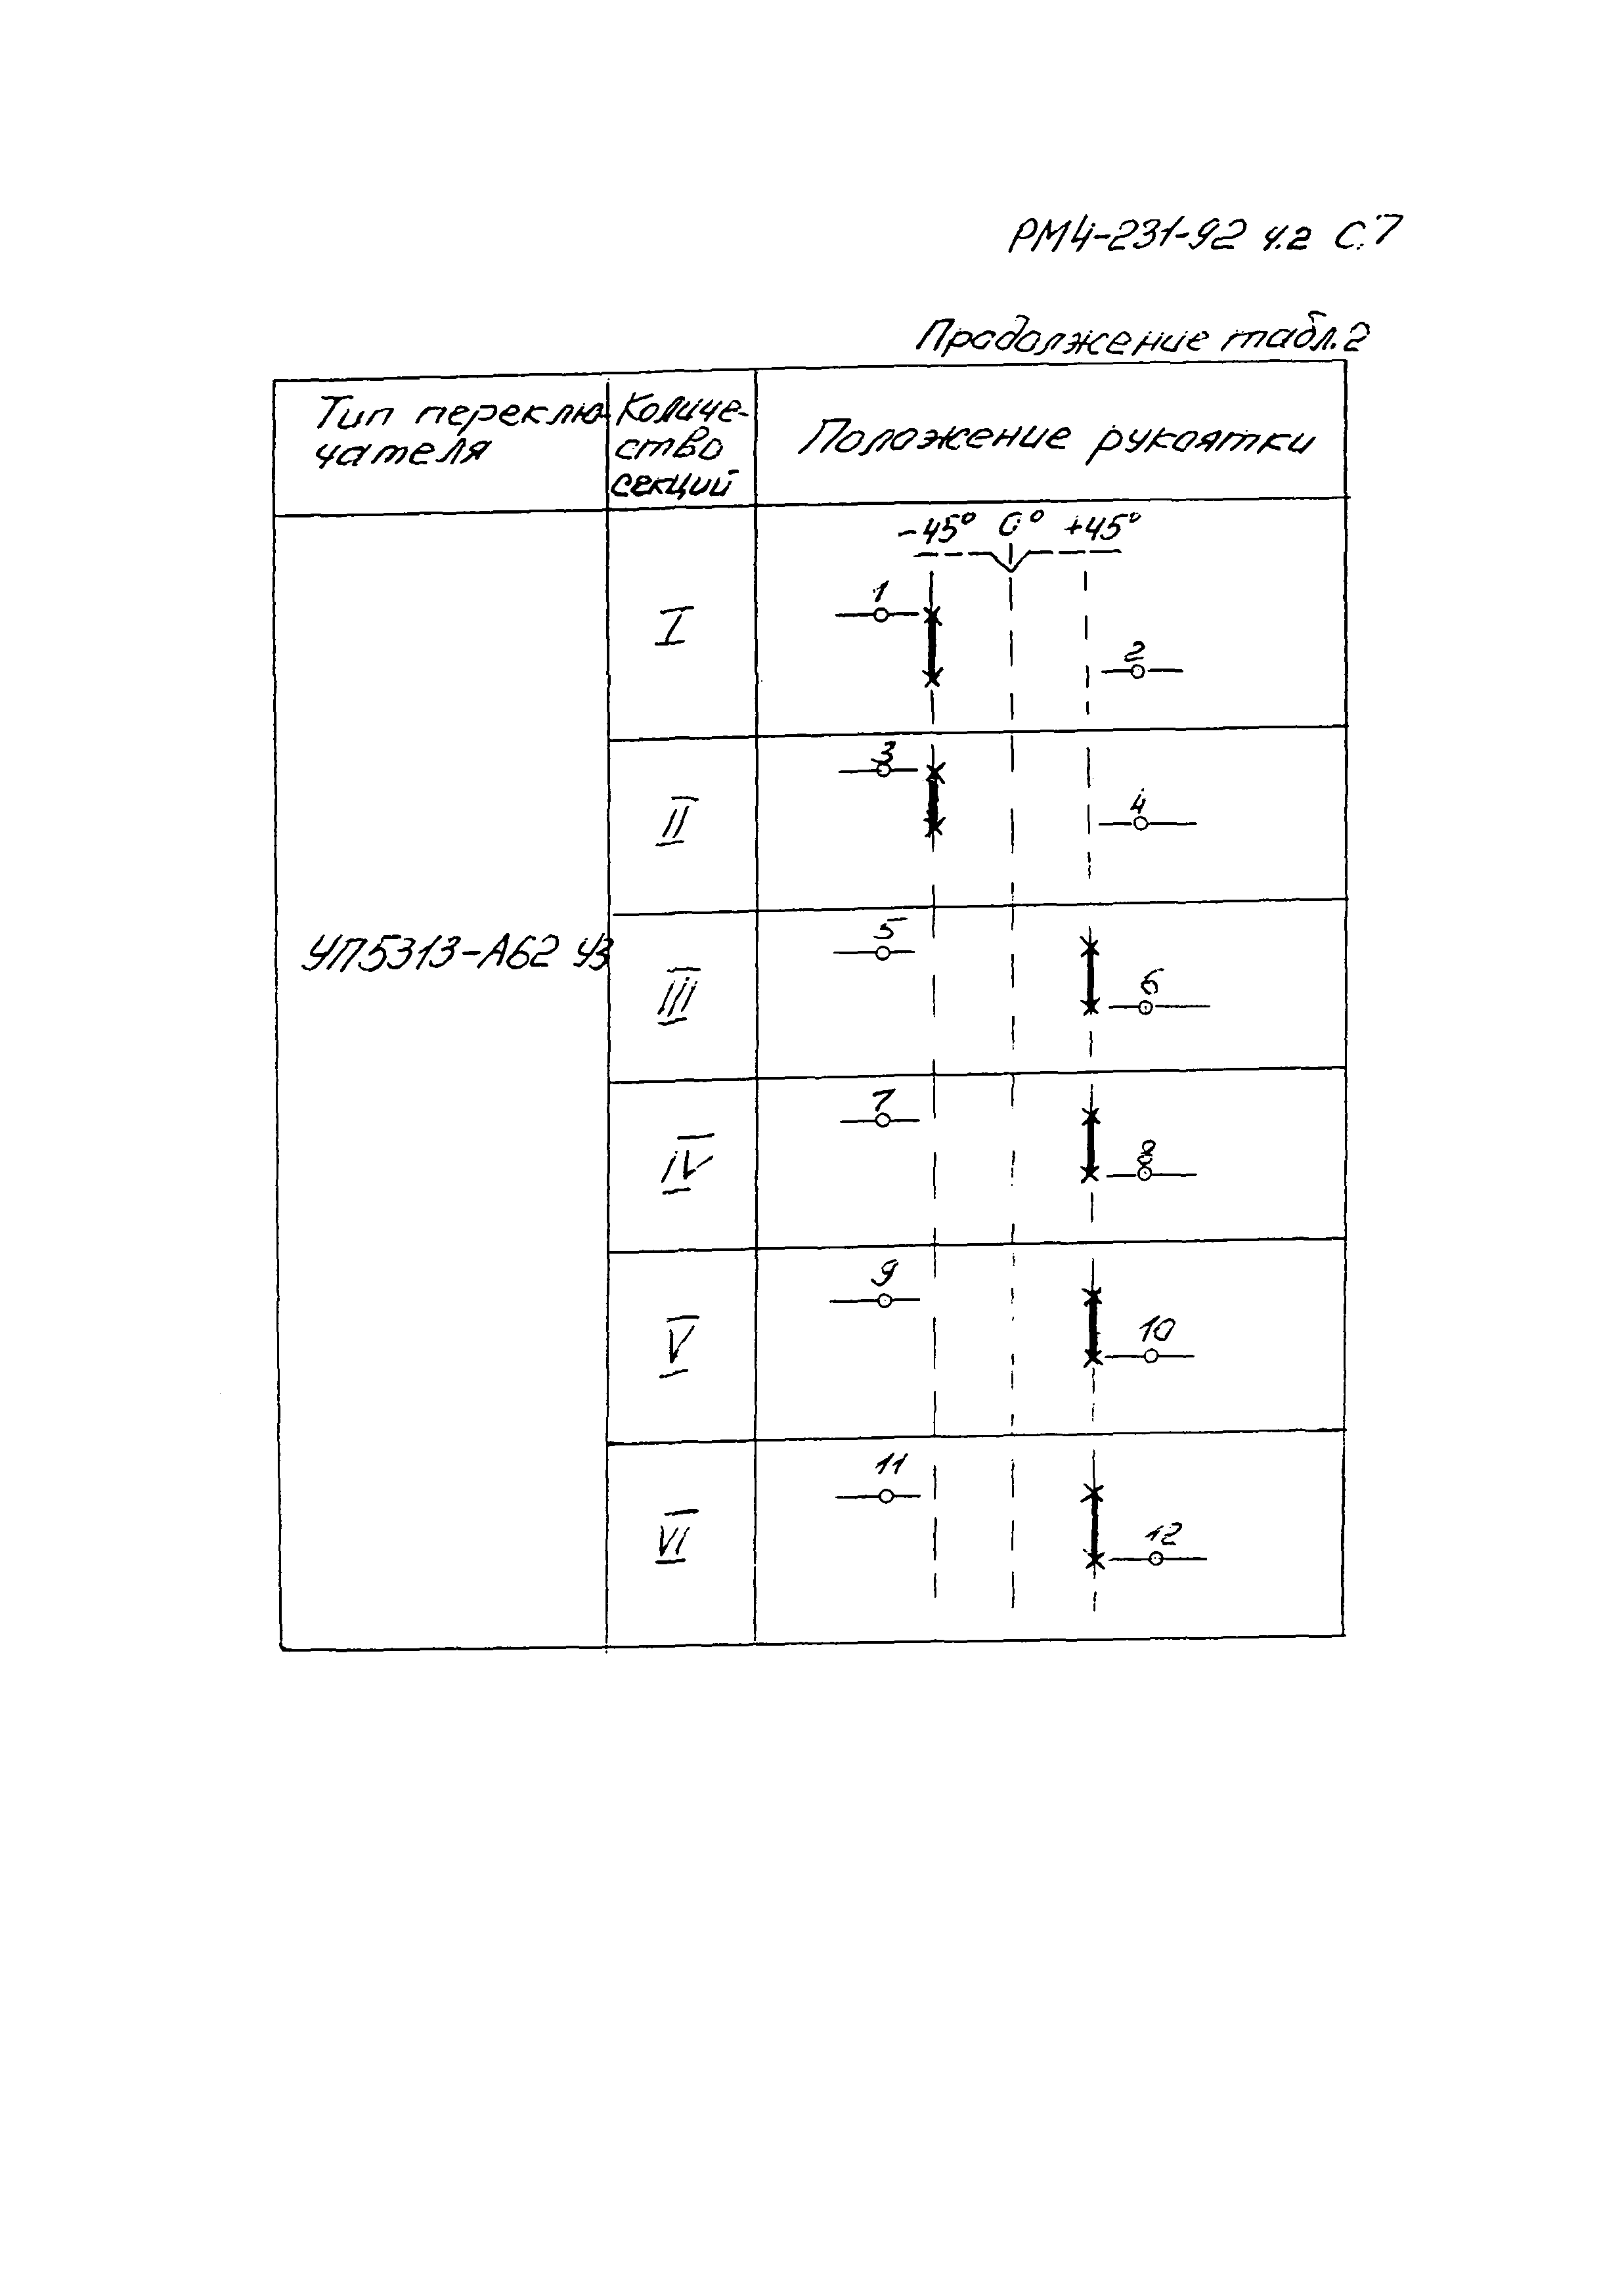 РМ4-231-92 ч.2 С.7
Продолжение табл.2
Тип переклю-
чателя
Количе-
ство
секций
Положение рукоятки
-45° 0° +45°
I
1
2
II
3
4
УП5313-А62 У3
III
5
6
IV
7
8
V
9
10
VI
11
12